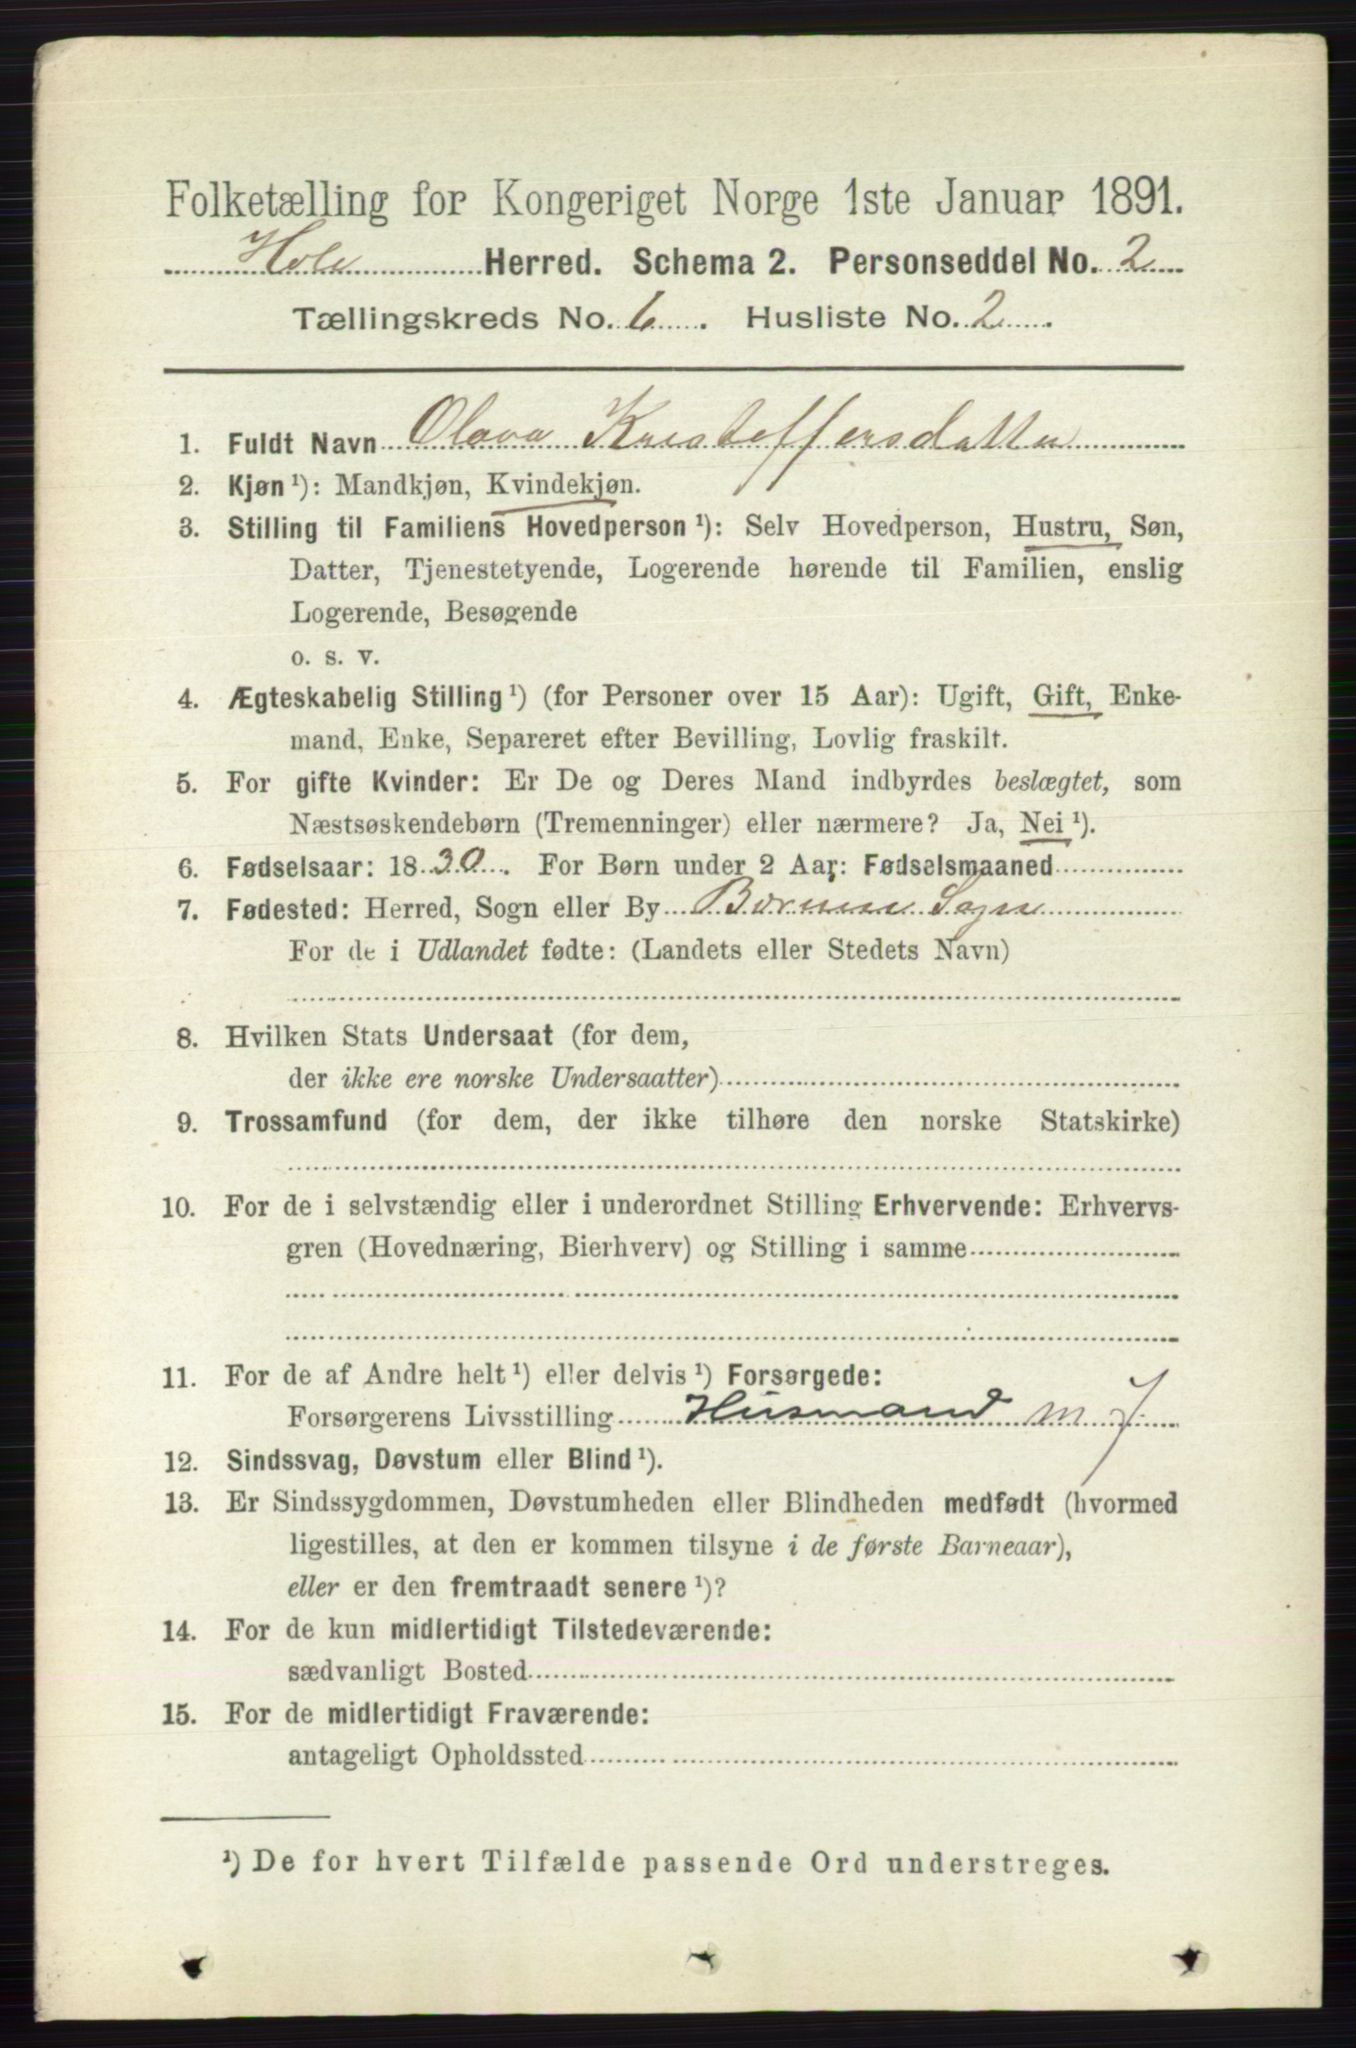 Folketælling for Kongeriget Norge 1ste Januar 1891.
Hole Herred. Schema 2. Personseddel No. 2
Tællingskreds No. 6. Husliste No. 2.
1. Fuldt Navn Olava Kristoffersdatter
2. Kjøn ¹): Mandkjøn, Kvindekjøn.
3. Stilling til Familiens Hovedperson ¹): Selv Hovedperson, Hustru, Søn,
Datter, Tjenestetyende, Logerende hørende til Familien, enslig
Logerende, Besøgende
o. s. v.
4. Ægteskabelig Stilling ¹) (for Personer over 15 Aar): Ugift, Gift, Enke-
mand, Enke, Separeret efter Bevilling, Lovlig fraskilt.
5. For gifte Kvinder: Er De og Deres Mand indbyrdes beslægtet, som
Næstsøskendebørn (Tremenninger) eller nærmere? Ja, Nei ¹).
6. Fødselsaar: 1830. For Børn under 2 Aar: Fødselsmaaned
7. Fødested: Herred, Sogn eller By Bærums Sogn
For de i Udlandet fødte: (Landets eller Stedets Navn)
8. Hvilken Stats Undersaat (for dem,
der ikke ere norske Undersaatter)
9. Trossamfund (for dem, der ikke tilhøre den norske Statskirke)
10. For de i selvstændig eller i underordnet Stilling Erhvervende: Erhvervs-
gren (Hovednæring, Bierhverv) og Stilling i samme
11. For de af Andre helt ¹) eller delvis ¹) Forsørgede:
Forsørgerens Livsstilling Husmand m J.
12. Sindssvag, Døvstum eller Blind ¹).
13. Er Sindssygdommen, Døvstumheden eller Blindheden medfødt (hvormed
ligestilles, at den er kommen tilsyne i de første Barneaar),
eller er den fremtraadt senere ¹)?
14. For de kun midlertidigt Tilstedeværende:
sædvanligt Bosted
15. For de midlertidigt Fraværende:
antageligt Opholdssted
¹) De for hvert Tilfælde passende Ord understreges.